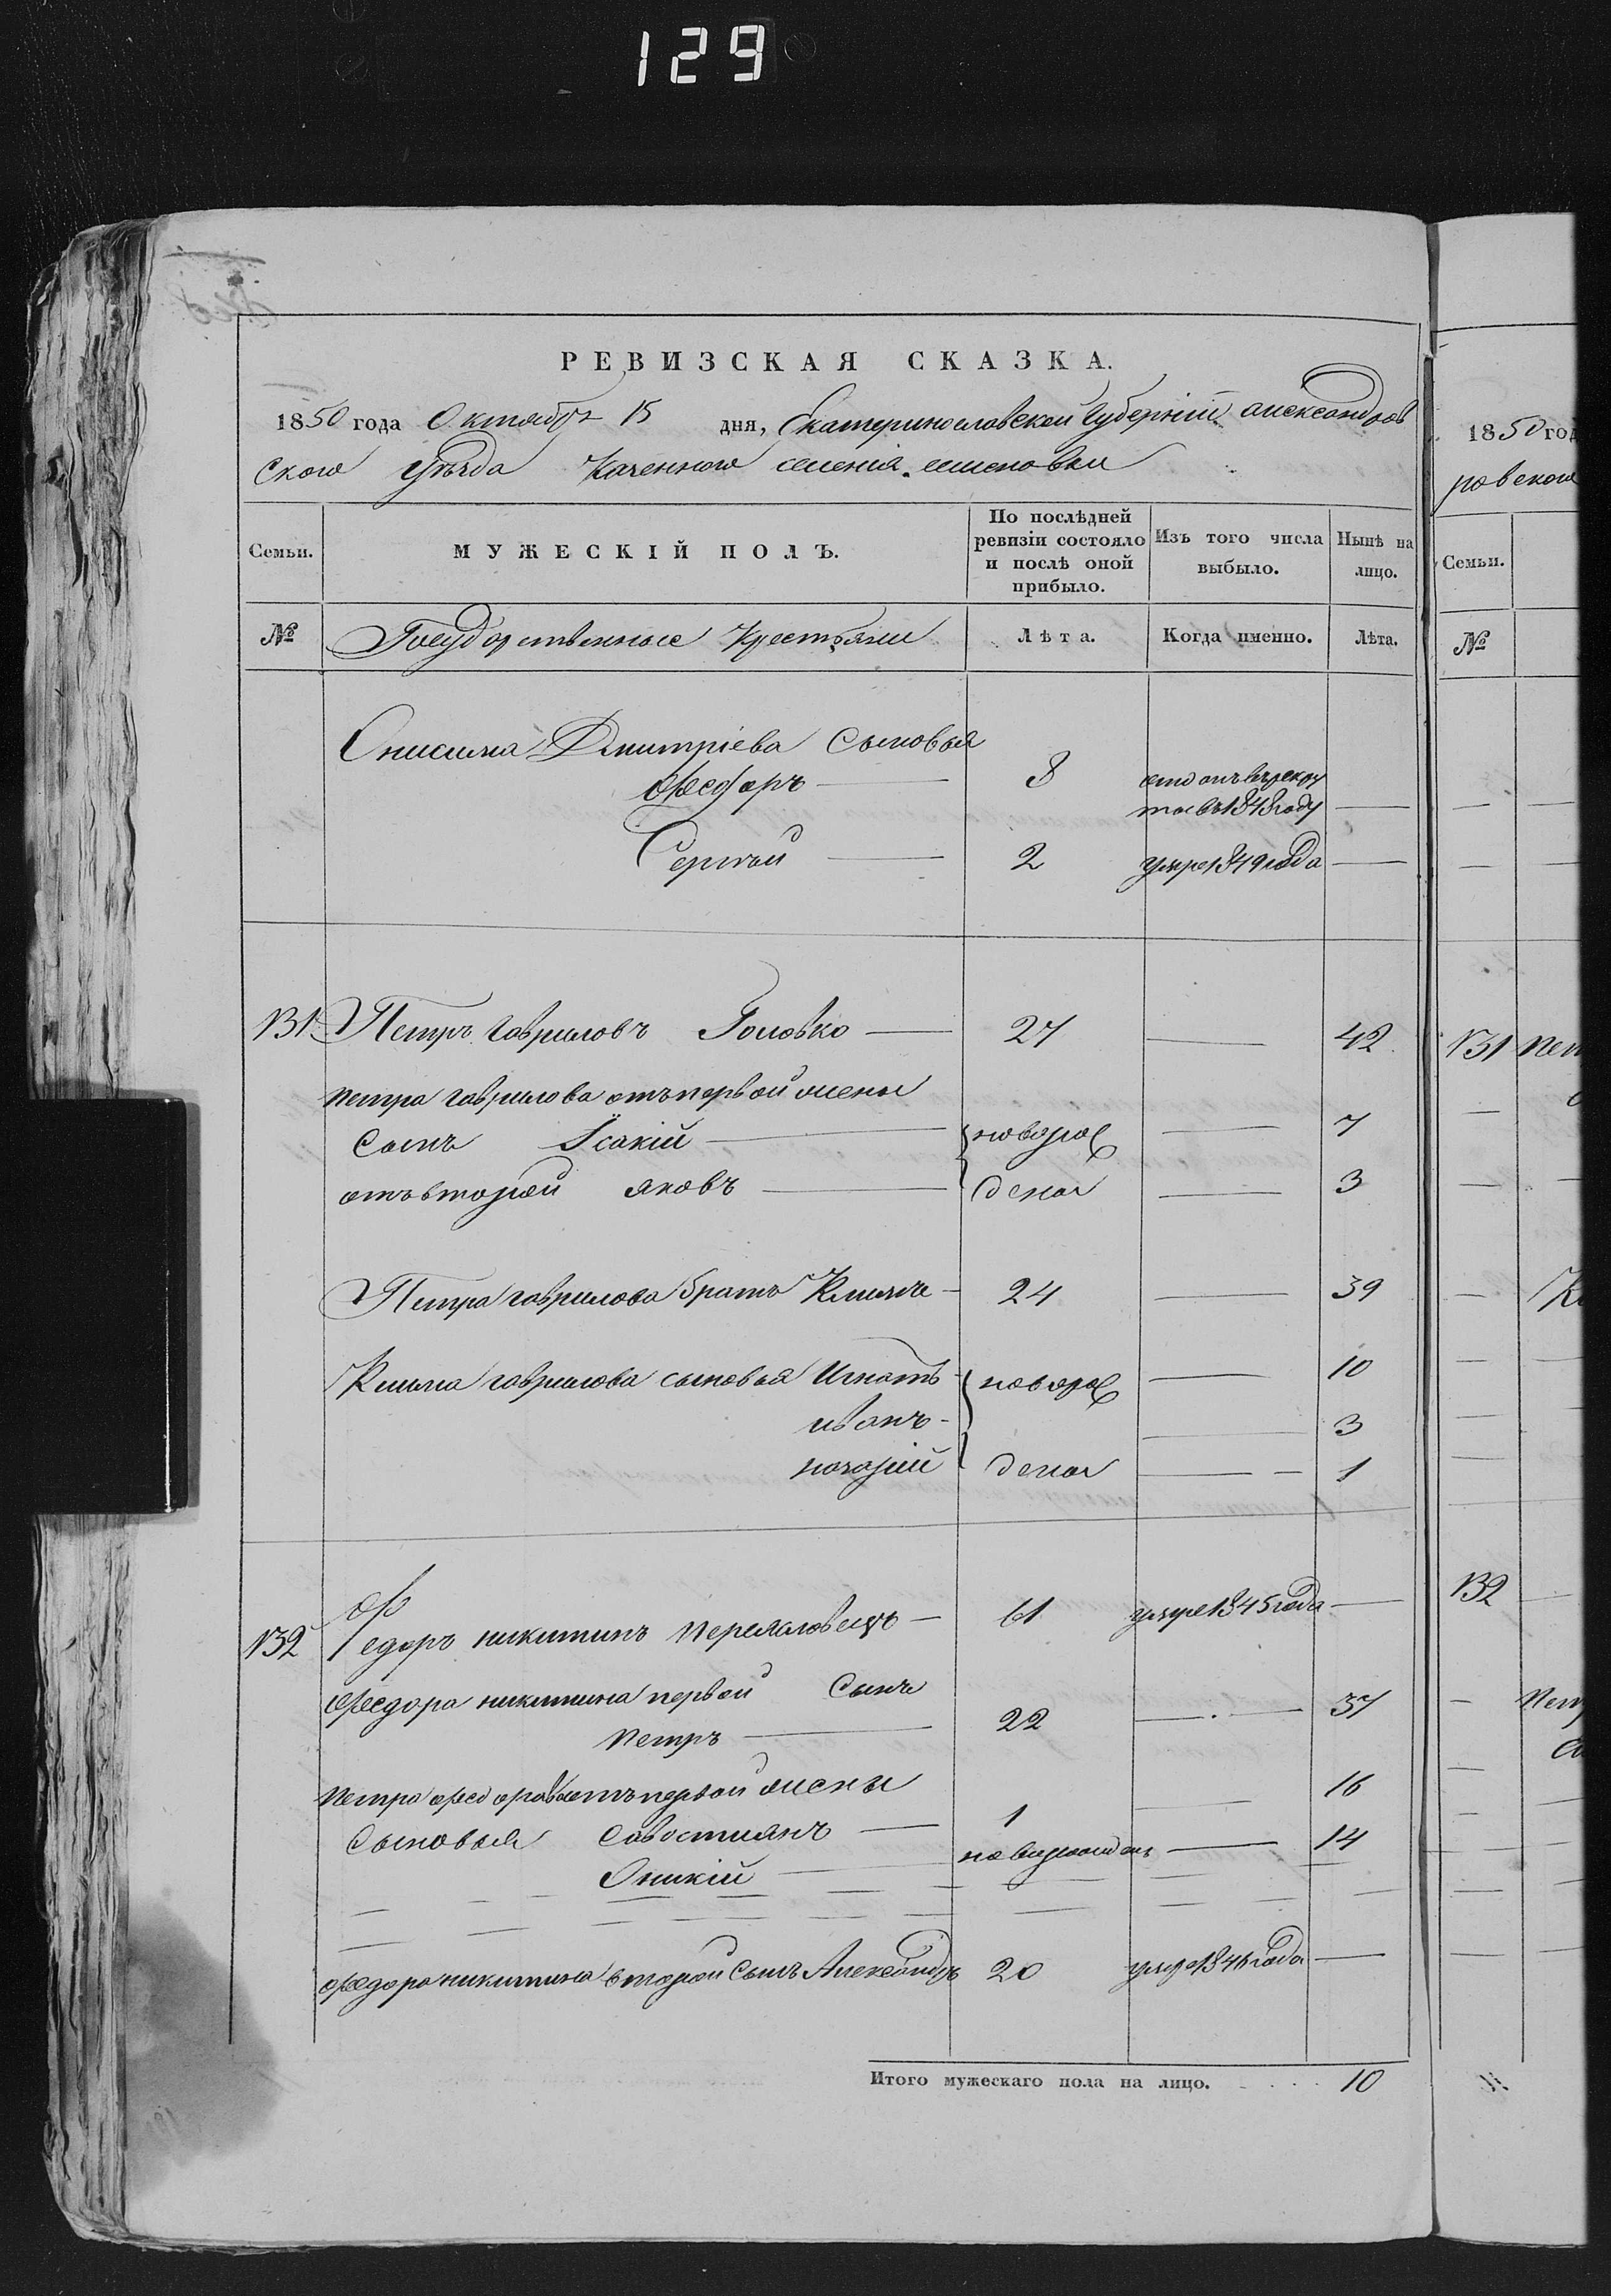 129
РЕВИЗСКАЯ СКАЗКА.
1850 года Октября 15 дня, Екатеринославской Губерніи александров
ского уѣзда Казенного селенія
Семьи.
МУЖЕСКІЙ ПОЛЪ.
По послѣдней ревизіи состояло и послѣ оной прибыло.
Изъ того числа выбыло.
Нынѣ на лицо.
№ Государственные крестьяне Лѣта. Когда именно. Лѣта.
Онисима Дмитріева сыновья
Федоръ 8 отданъ въ рекру
ты въ 1848 году
Сергей 2 умре 1849 года
131 Петръ гавриловъ Головко 27 42
петра гаврилова отъ первой жены
сынъ Ісакій новорож 7
отъ второй яковъ дена 3
Петра гаврилова братъ Климъ 24 39
Клима гаврилова сыновья Игнатъ новорож 10
иванъ 3
назарій дена 1
132 Федоръ никитинъ 61 умре 1845 года
Федора никитина первой сынъ
петръ 22 37
петра федорова отъ первой жены 16
сыновья Савостиянъ 1
Оникій новорожденъ 14
Федора никитина второй сынъ Александръ 20 умре 1846 года
Итого мужескаго пола на лицо. 10
1850 год
ровского
Семьи.
№
131 пет
Кл
132
пет